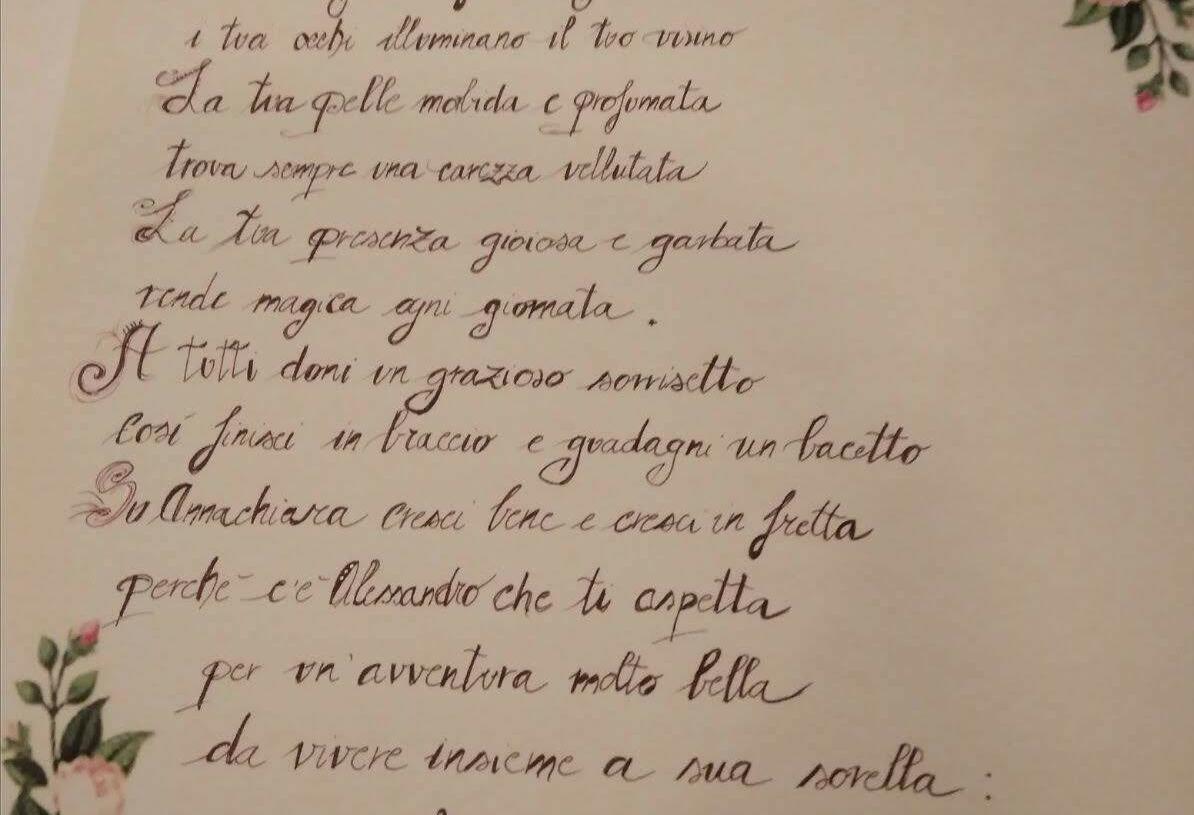 i tuoi occhi illuminano il tuo visino
La tua pelle molida e profumata
trova sempre una carezza vellutata
La tua presenza gioiosa e garbata
rende magica ogni giornata.
A tutti doni un grazioso sorrisetto
così finisci in braccio e guadagni un bacetto
Su Annachiara cresci bene e cresci in fretta
perchè c'è Alessandro che ti aspetta
per un'avventura molto bella
da vivere insieme a sua sorella: